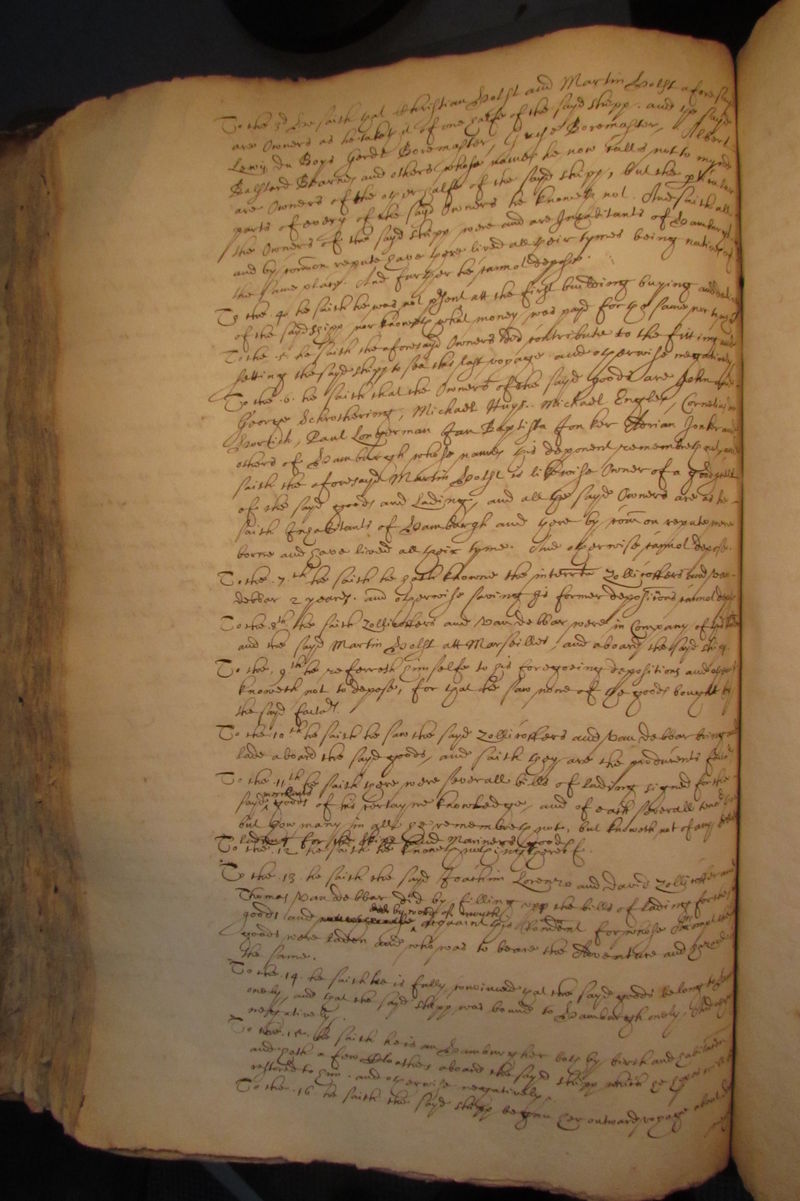 To the 3d hee saith that Christian Holst and Martin Holst aforesayd
are Owners as he taketh it of one halfe of the sayd shipp. and the sayd
Lewis du Boys Gerdt Boremaster, Boremaster, Albert
and others whose names he now calls not to mynde
are Owners of the other halfe of the sayd shipp, but the particular
parts of every of the sayd Owners he knoweth not. And saith all
the Owners of the sayd shipp were and are Inhabitants of Hamburgh
and by common repute have there lived all their tymes being natives of
the same place. And further he cannot depose.
To the 4 he saith he was not present att the first building buying and
of the sayd shipp nor knoweth what money was payd for the same nor
To the 5 he saith the aforesayd Owners did contribute to the fitting and
setting the sayd shipp to sea this last voyage. and otherwise negatively
To the 6. he saith that the Owners of the sayd goods are John
George Schrothering, Michael Huys. Michael Engler, Cornelius
Paul Longerman Jan Baptista Jonker Adrian Jonker and
others of Hamburgh whose names this deponent remembreth not, and
saith the aforesayd Martin Holst is likewise Owner of a good
of the sayd goods and Lading, and all the sayd Owners are as he
saith Inhabitants of Hamburgh and there by common repute were
borne and have lived all their tyme. And otherwise cannot depose.
To the .7th he saith he hath knowne the interrte Zollicoffers and Van
debbar 2 yeares. and otherwise saving his former depositions cannot depose
To the 8th he saith Zollicoffers and Van debbar were in Company of
and the sayd Martin Holst att Marseilles, and aboard the sayd ship.
To the .9th he referreth himselfe to his foregoeing depositions and otherwise
knoweth not to depose, for that he saw none of the goods bought by
the sayd factors.
To the 10th he saith he saw the sayd Zollicoffers and Van debbar bring and
lade aboard the sayd goods, and saith they are the
To the 11th he saith there were severall bills of lading signed for the
sayd merchants goods of his certayne knowledge, and of each severall
but how many in all he remembreth not, but knoweth not of any
lading for the shipps and Mariners goods
To the 12 he saith he knoweth nothing thereof.
To the 13. he saith the sayd Joachim Lorenzo and David Zollicoffer and
Thomas Van debbar did by filling upp the bills of lading for the sayd
goods and also by word of mouth acquaint this deponent for whose Accompt the
goods were laden and who was to beare the Adventure and hazard of
the same.
To the 14. he saith he is fully convinced that the sayd goods belong to
onely, and that the sayd shipp was bound to Hamburgh onely. And
negatively.
To the .15. he saith he is an Hamburgher both by birth and habitation
and hath a few Cloathes aboard the sayd shipp which he hopes
restored to him. and otherwise negatively.
To the .16 he saith the sayd shipp began her outward voyage about